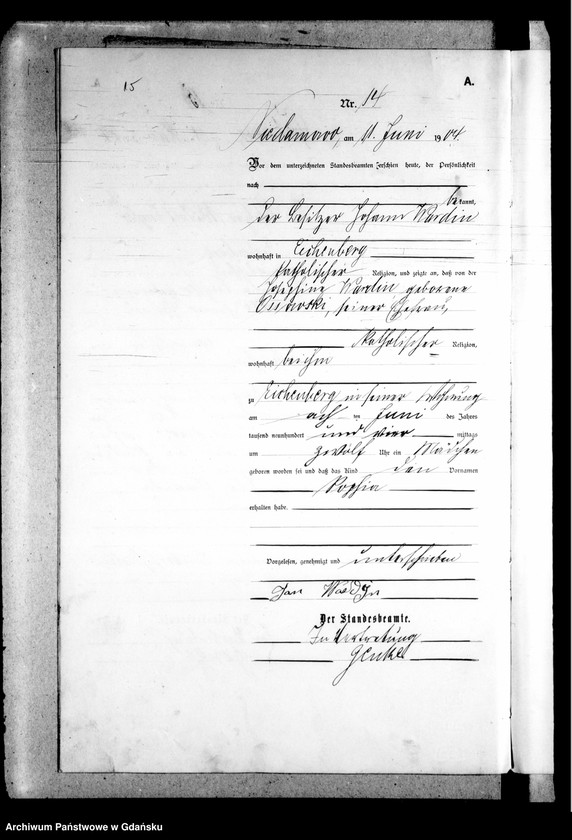 15
A.
Nr. 14
am 11. Juni 1904
Vor dem unterzeichneten Standesbeamten erschien heute, der Persönlichkeit
nach
bekannt,
der Besitzer Johann Wardin
wohnhaft in Eichenberg
katholischer Religion, und zeigte an, daß von der
Josephine Wardin geborene
seiner Ehefrau,
katholischer Religion,
wohnhaft bei ihm
zu Eichenberg in seiner Wohnung
am acht ten Juni des Jahres
tausend neunhundert und vier mittags
um zwölf Uhr ein Mädchen
geboren worden sei und daß das Kind den Vornamen
Sophia
erhalten habe.
Vorgelesen, genehmigt und unterschrieben
Jan
Der Standesbeamte.
In Vertretung
Archiwum Państwowe w Gdańsku